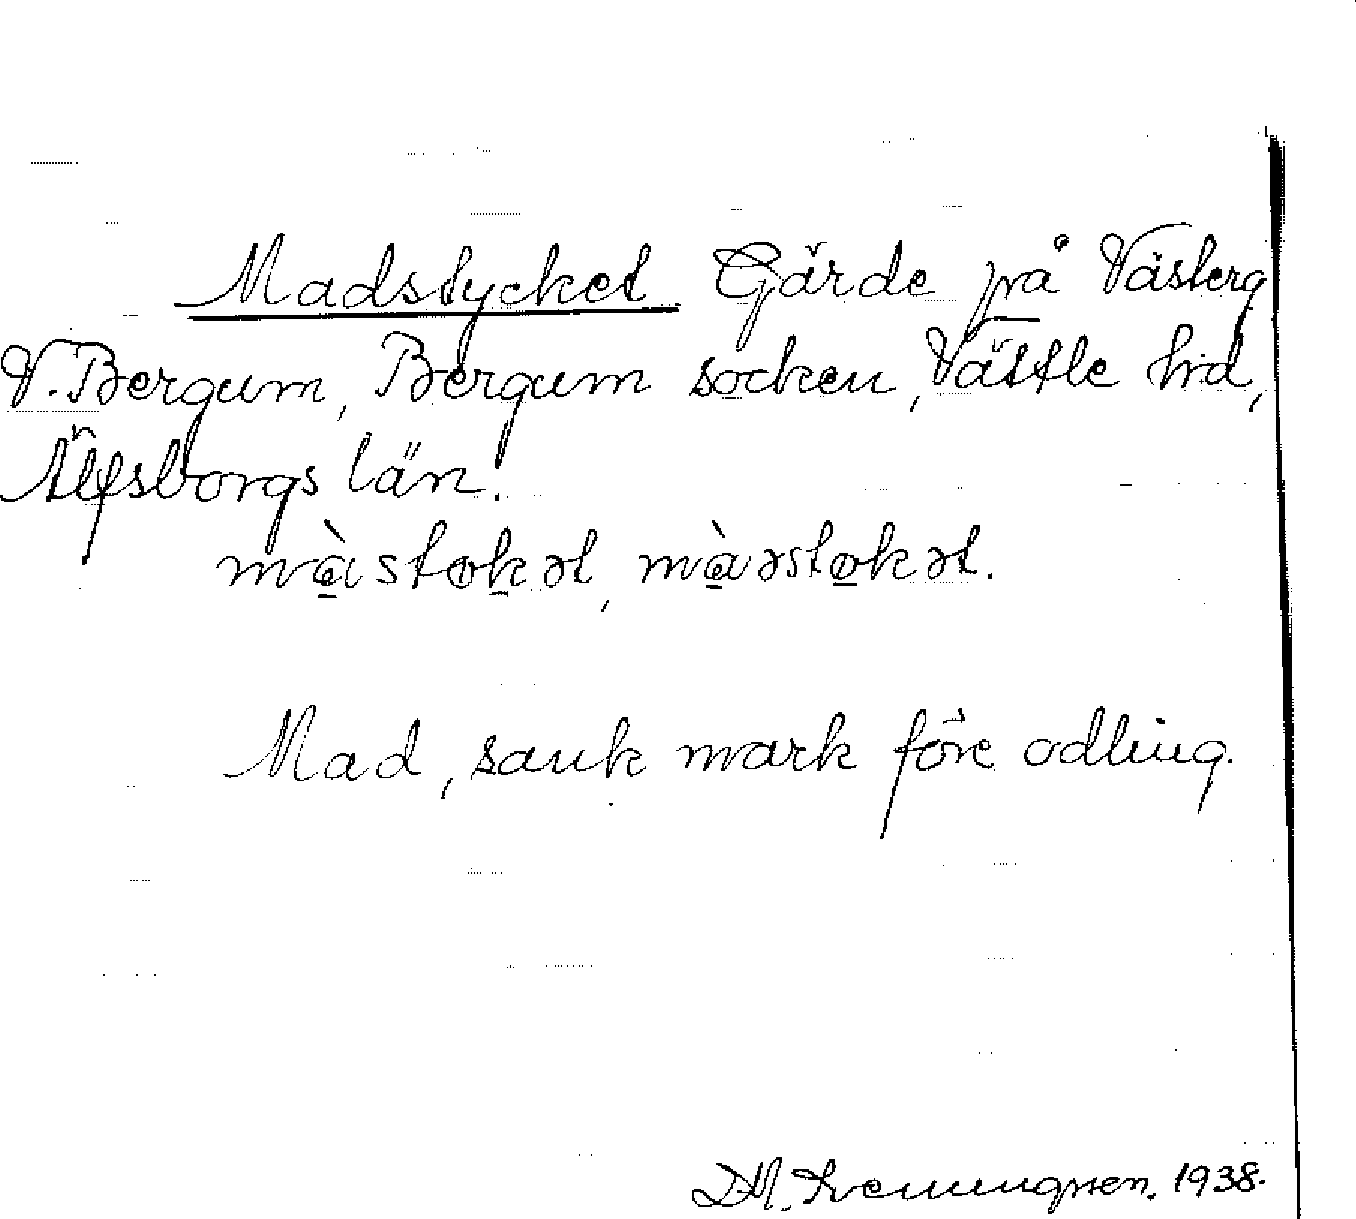 Madstycket Gärde på Västerg
V. Bergum, Bergum socken, Vättle hrd,
Älfsborgs län.
màstøkət, màəstøkət.
Mad, sank mark före odling.
1938.